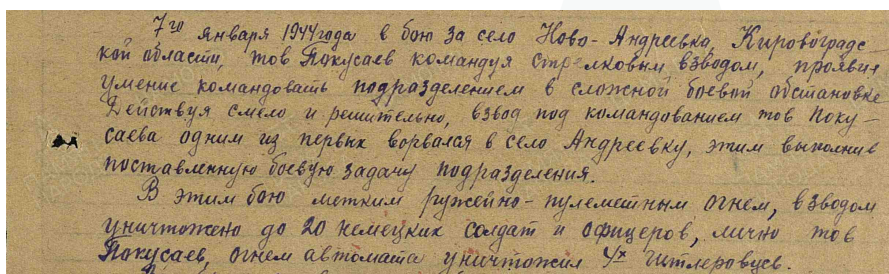 7го января 1944 года в бою за село Ново-Андреевка, Кировоградс-
кой области, тов Покусаев командуя стрелковым взводом, проявил
умение командовать подразделением в сложной боевой обстановке
Действуя смело и решительно, взвод под командованием тов Поку-
саева одним из первых ворвался в село Андреевку, этим выполнив
поставленную боевую задачу подразделения.
В этим бою метким ружейно-пулеметным огнем, взводом
уничтожено до 20 немецких солдат и офицеров, лично тов
Покусаев, огнем автомата уничтожил 4х гитлеровцев.